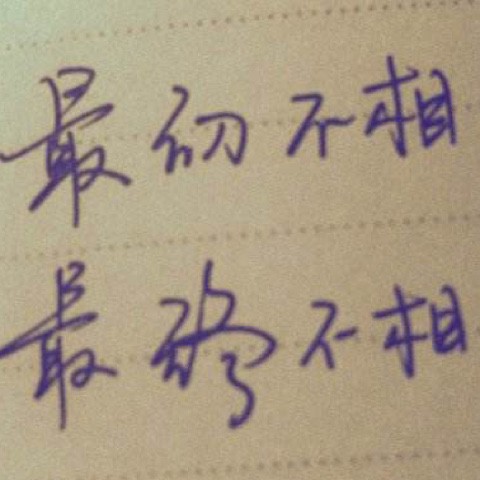 最初不相
最终不相